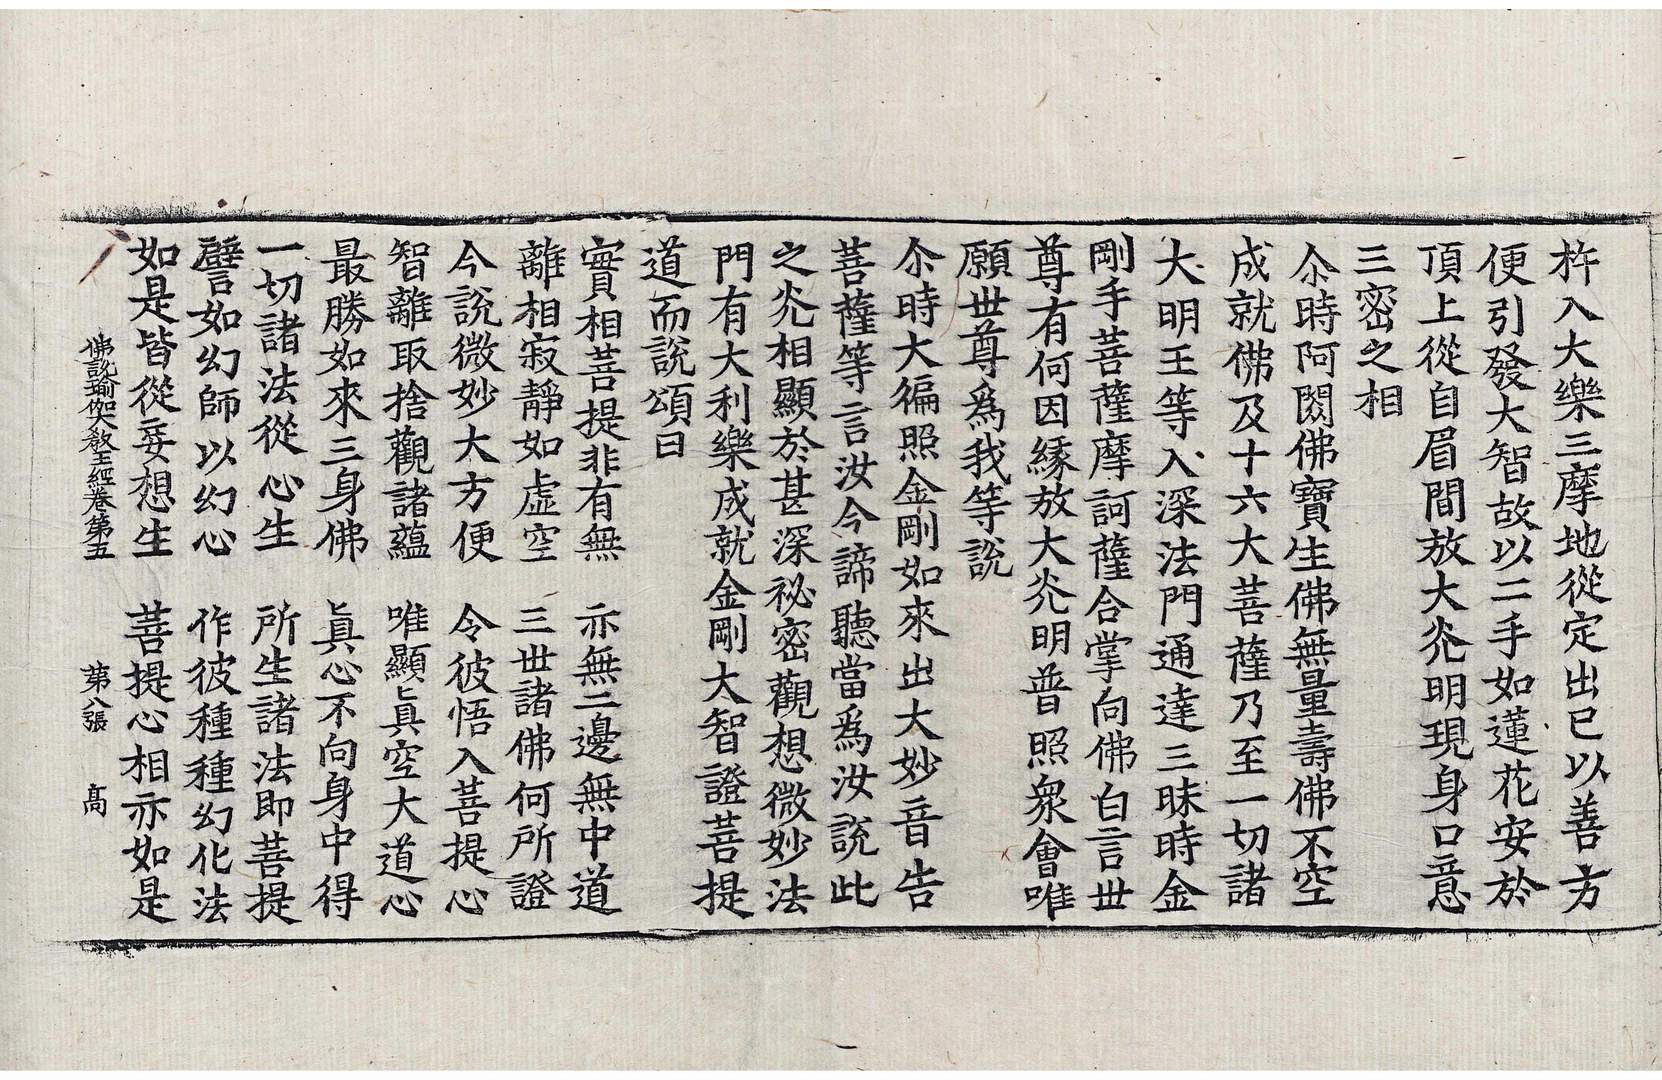 杵入大樂三摩地從定出已以善方
便引發大智故以二手如蓮花安於
頂上從自眉間放大光明現身口意
三密之相
尒時阿閦佛寶生佛無量壽佛不空
成就佛及十六大菩薩乃至一切諸
大明王等入深法門通達三昧時金
剛手菩薩摩訶薩合掌向佛白言世
尊有何因緣放大光明普照衆會唯
願世尊爲我等說
尒時大徧照金剛如來出大妙音告
菩薩等言汝今諦聽當爲汝說此
之光相顯於甚深祕密觀想微妙法
門有大利樂成就金剛大智證菩提
道而說頌曰
實相菩提非有無　亦無二邊無中道
離相寂靜如虛空　三世諸佛何所證
今說微妙大方便　令彼悟入菩提心
智離取捨觀諸蘊　唯顯眞空大道心
最勝如來三身佛　眞心不向身中得
一切諸法從心生　所生諸法即菩提
譬如幻師以幻心　作彼種種幻化法
如是皆從妄想生　菩提心相亦如是
佛說瑜伽大敎王經卷第五　第八張　高